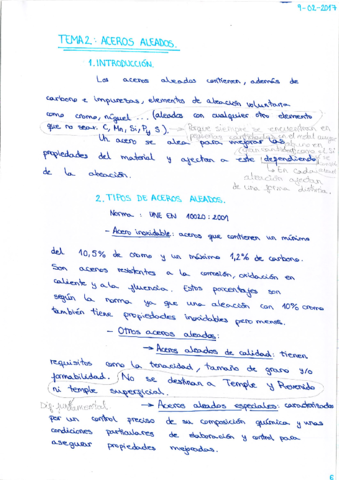 9-02-2017
TEMA 2: ACEROS ALEADOS.
1. INTRODUCCIÓN.
Los aceros aleados contienen, además de
carbono e impurezas, elementos de aleación voluntaria
como cromo, níquel ... (aleados con cualquier otro elemento
que no sean C, Mn, Si, P y S). → Porque siempre se encuentran en
Un acero se alea para mejorar las
propiedades del material y afectan a este dependiendo
de la aleación.
→ En cada
aleación afectan
de una forma distinta.
2. TIPOS DE ACEROS ALEADOS.
Norma: UNE EN 10020:2001
- Acero inoxidable: aceros que contienen un mínimo
del 10,5% de cromo y un máximo 1,2% de carbono.
Son aceros resistentes a la corrosión, oxidación en
caliente y a la fluencia. Estos porcentajes son
según la norma ya que una aleación con 10% cromo
también tiene propiedades inoxidables pero menos.
- Otros aceros aleados:
→ Aceros aleados de calidad: tienen
requisitos como la tenacidad, tamaño de grano y/o
formabilidad. No se destinan a Temple y Revenido
ni temple superficial.
Dif. fundamental → Aceros aleados especiales: caracterizados
por un control preciso de su composición química y unas
condiciones particulares de elaboración y control para
asegurar propiedades mejoradas.
6